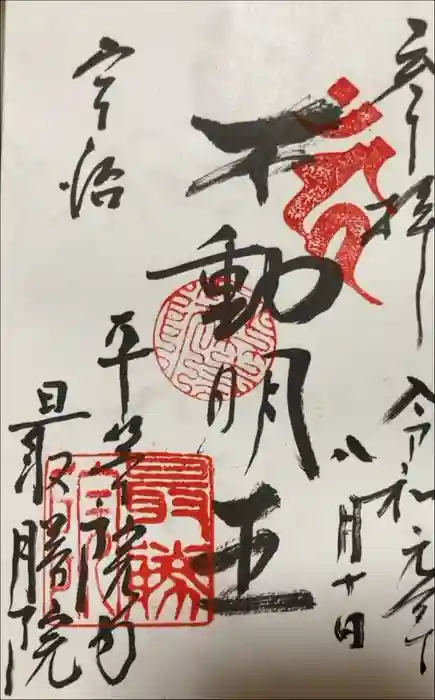 奉拝
令和元年
八月十日
不動明王
宇治
平等院内
最勝院